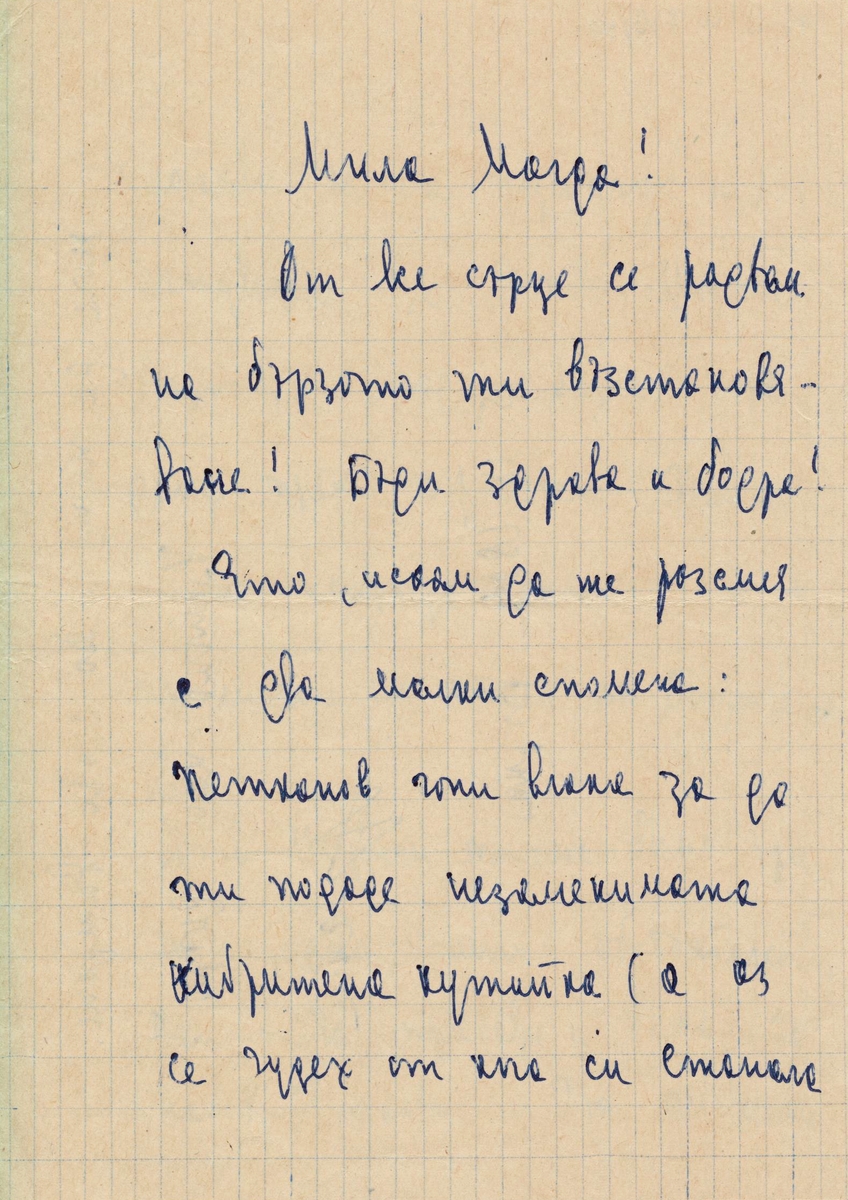 Мила Магда!
От все сърце се радвам
на бързото ти възстановя-
ване! Бъди здрава и бодра!
Ято, искам да те разсмея
с два малки спомена:
Петканов гони влака за да
ти подаде незаменимата
кибритена кутийка (а аз
се чудех от кога си станала